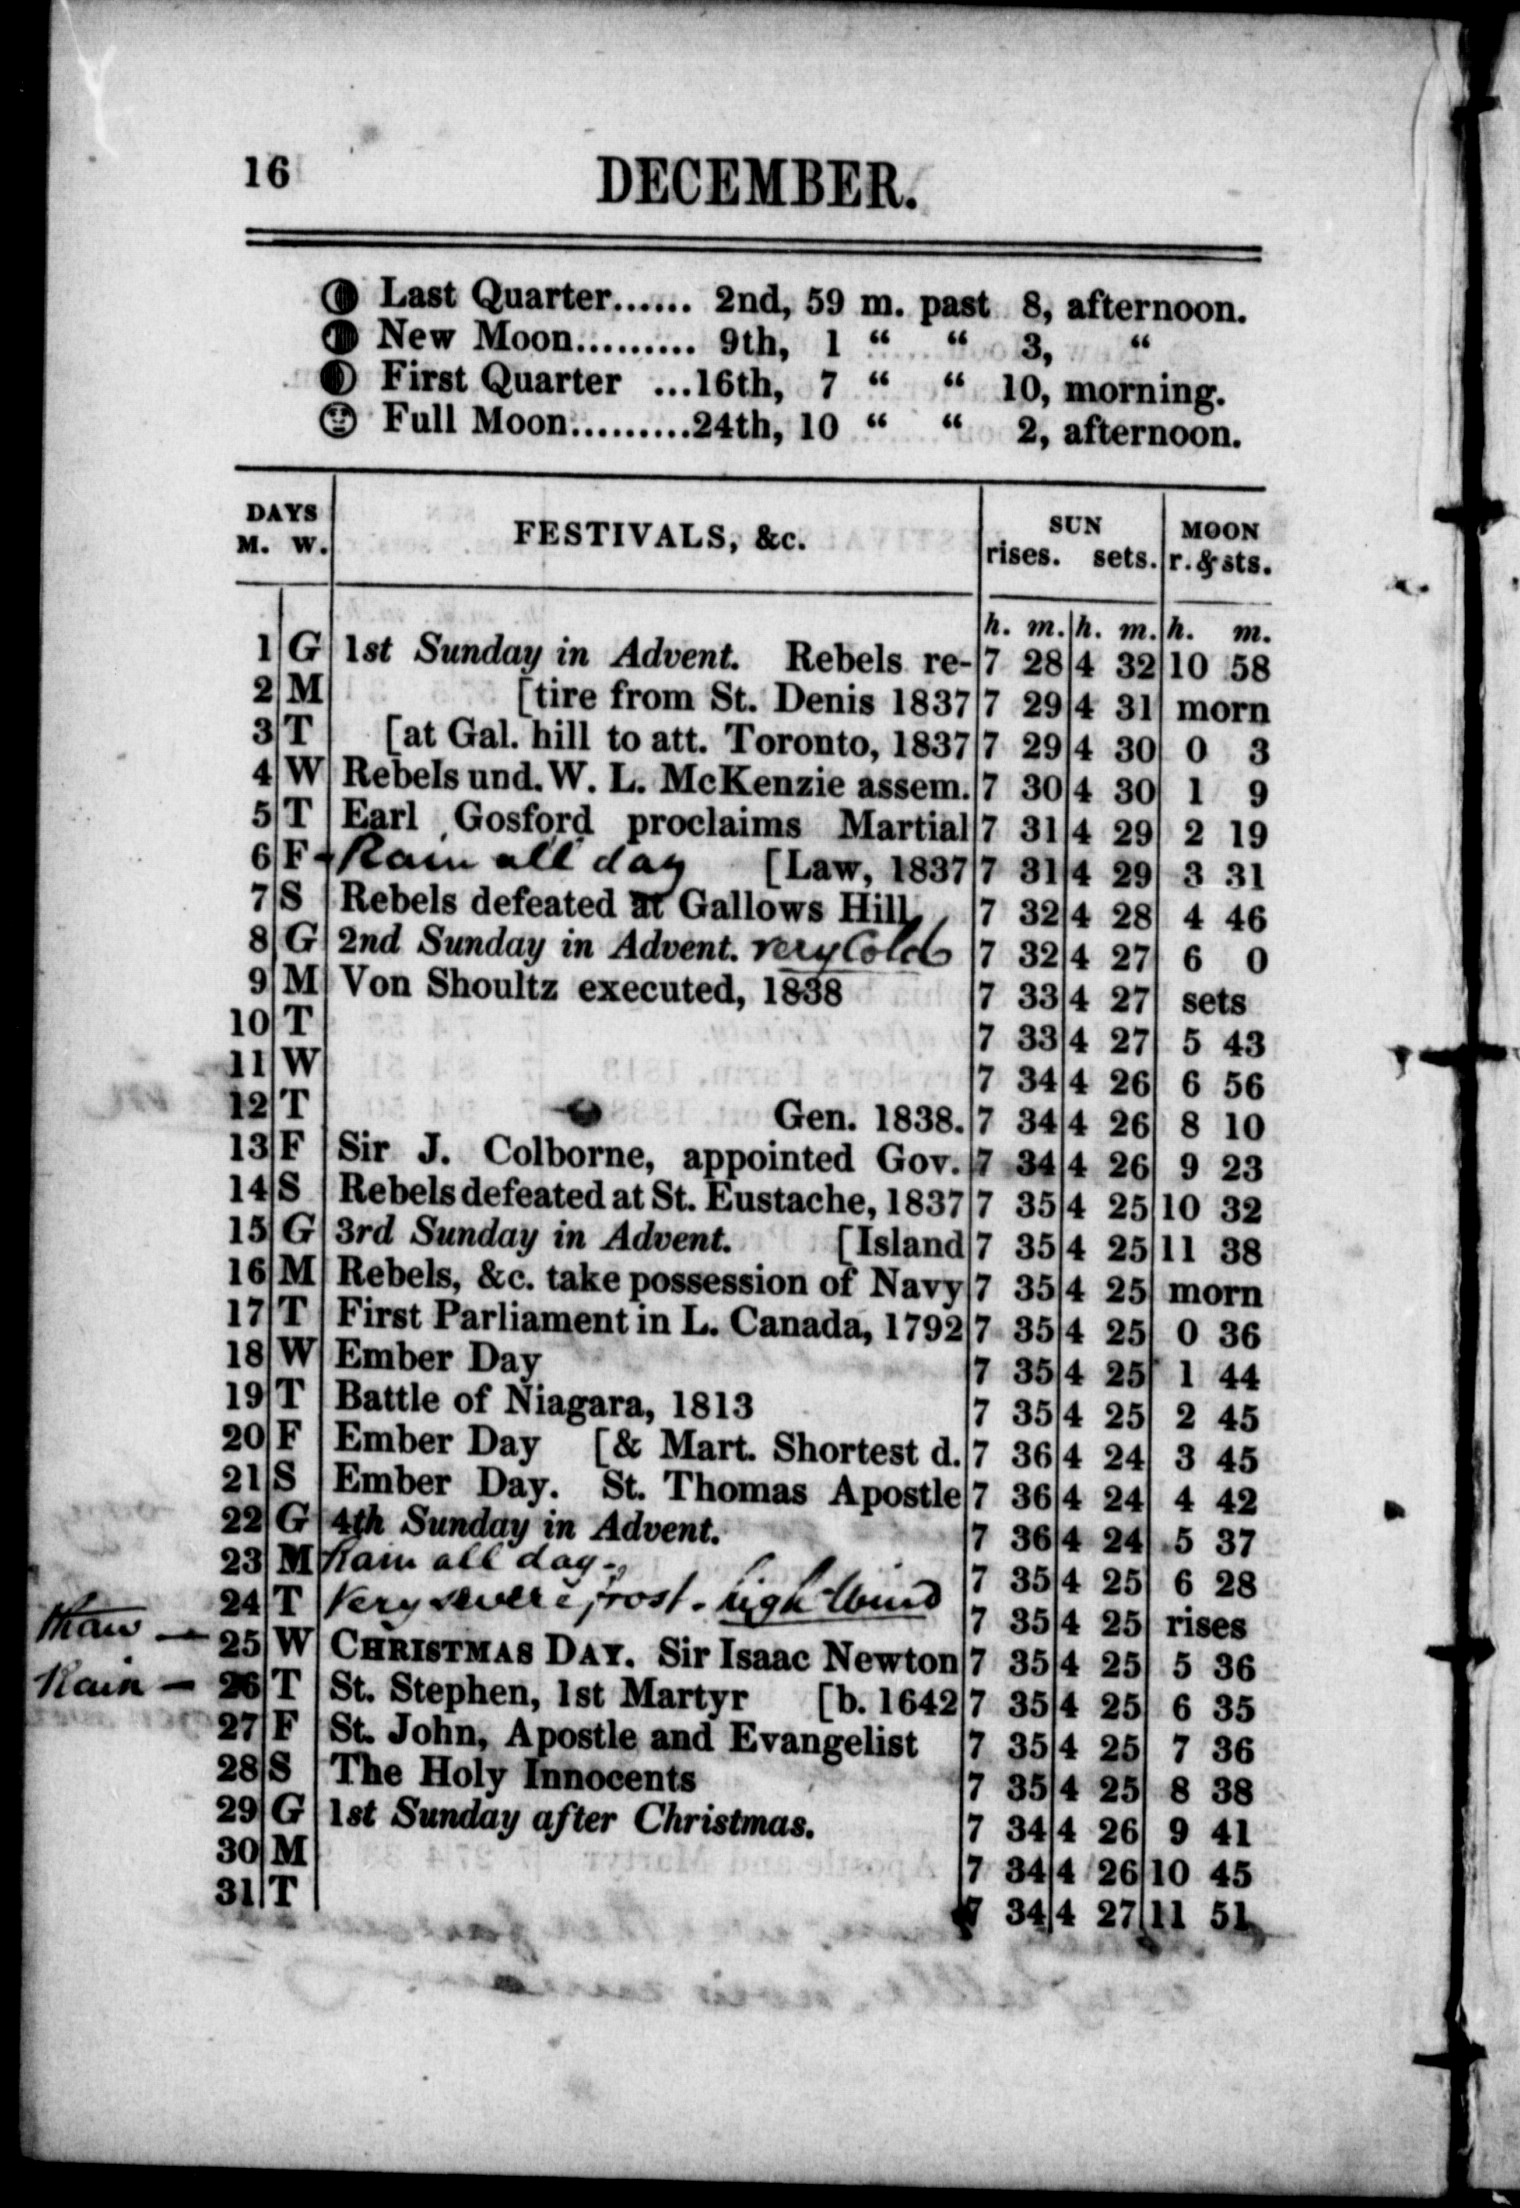 16
DECEMBER.
Last Quarter....... 2nd, 59 m. past 8, afternoon.
New Moon.......... 9th, 1 “ “ 3, “
First Quarter ...16th, 7 “ “ 10, morning.
Full Moon..........24th, 10 “ “ 2, afternoon.
DAYS M. W. FESTIVALS, &c. SUN rises. sets. MOON r. & sts.
h. m. h. m. h. m.
1 G 1st Sunday in Advent. Rebels re- 7 28 4 32 10 58
2 M [tire from St. Denis 1837 7 29 4 31 morn
3 T [at Gal. hill to att. Toronto, 1837 7 29 4 30 0 3
4 W Rebels und. W. L. McKenzie assem. 7 30 4 30 1 9
5 T Earl Gosford proclaims Martial 7 31 4 29 2 19
6 F - Rain all day [Law, 1837 7 31 4 29 3 31
7 S Rebels defeated at Gallows Hill, 7 32 4 28 4 46
8 G 2nd Sunday in Advent. very Cold 7 32 4 27 6 0
9 M Von Shoultz executed, 1838 7 33 4 27 sets
10 T 7 33 4 27 5 43
11 W 7 34 4 26 6 56
12 T Gen. 1838. 7 34 4 26 8 10
13 F Sir J. Colborne, appointed Gov. 7 34 4 26 9 23
14 S Rebels defeated at St. Eustache, 1837 7 35 4 25 10 32
15 G 3rd Sunday in Advent. [Island 7 35 4 25 11 38
16 M Rebels, &c. take possession of Navy 7 35 4 25 morn
17 T First Parliament in L. Canada, 1792 7 35 4 25 0 36
18 W Ember Day 7 35 4 25 1 44
19 T Battle of Niagara, 1813 7 35 4 25 2 45
20 F Ember Day [& Mart. Shortest d. 7 36 4 24 3 45
21 S Ember Day. St. Thomas Apostle 7 36 4 24 4 42
22 G 4th Sunday in Advent. 7 36 4 24 5 37
23 M Rain all day - 7 35 4 25 6 28
24 T Very severe frost. high Wind 7 35 4 25 rises
Thaw - 25 W CHRISTMAS DAY. Sir Isaac Newton 7 35 4 25 5 36
Rain - 26 T St. Stephen, 1st Martyr [b. 1642 7 35 4 25 6 35
27 F St. John, Apostle and Evangelist 7 35 4 25 7 36
28 S The Holy Innocents 7 35 4 25 8 38
29 G 1st Sunday after Christmas. 7 34 4 26 9 41
30 M 7 34 4 26 10 45
31 T 7 34 4 27 11 51